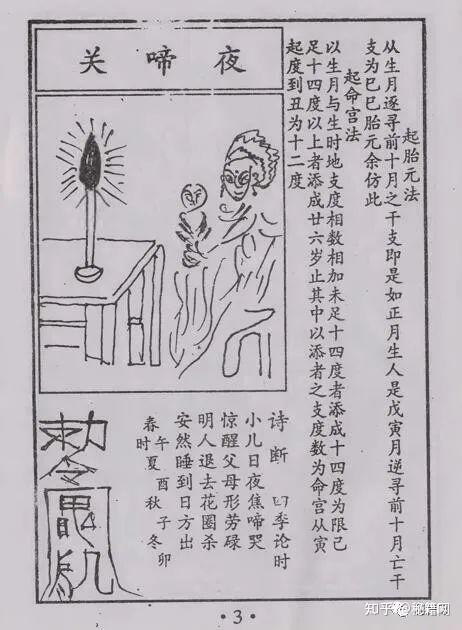 夜啼关
起胎元法
从生月逐寻前十月之干支即是如正月生人是戊寅月逆寻前十月亡干
支为巳巳胎元余仿此
起命宫法
以生月与生时地支度相数相加未足十四度者添成十四度为限已
足十四度以上者添成廿六岁止其中以添者之支度数为命宫从寅
起度到丑为十二度
诗断 四季论时
小儿日夜焦啼哭
惊醒父母形劳碌
明人退去花圈杀
安然睡到日方出
午酉子卯
春夏秋冬
时
敕令
·3·
知乎
秘籍网